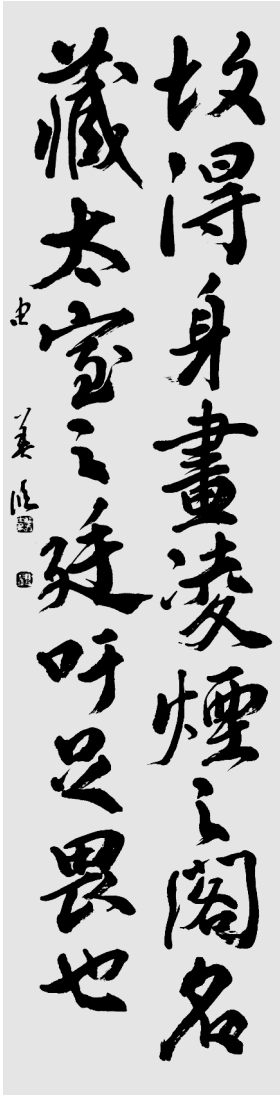 故得身畫凌煙之閣名
藏太室之廷吁足畏也